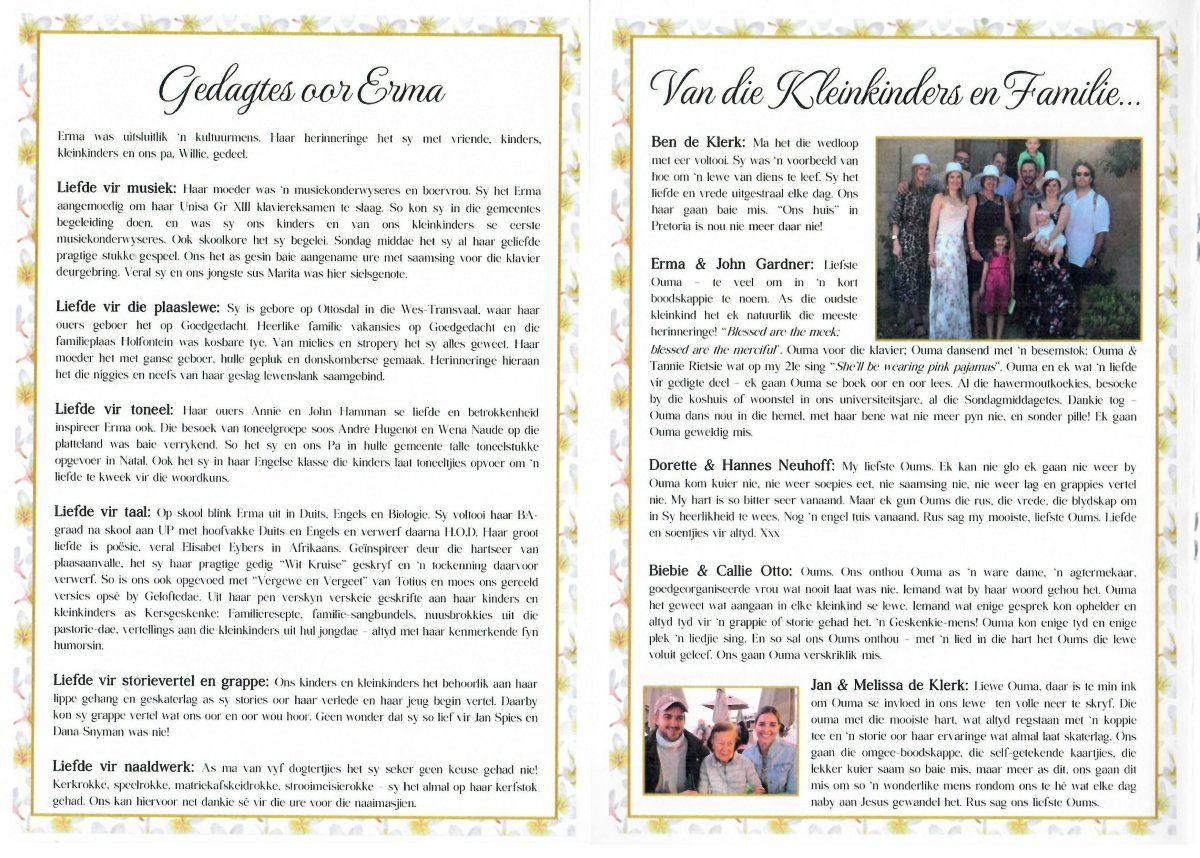 Gedagtes oor Erma
Erma was uitsluitlik 'n kultuurmens. Haar herinneringe het sy met vriende, kinders,
kleinkinders en ons pa, Willie, gedeel.
Liefde vir musiek: Haar moeder was 'n musiekonderwyseres en boervrou. Sy het Erma
aangemoedig om haar Unisa Gr XIII klaviereksamen te slaag. So kon sy in die gemeentes
begeleiding doen, en was sy ons kinders en van ons kleinkinders se eerste
musiekonderwyseres. Ook skoolkore het sy begelei. Sondag middae het sy al haar geliefde
pragtige stukke gespeel. Ons het as gesin baie aangename ure met saamsing voor die klavier
deurgebring. Veral sy en ons jongste sus Marita was hier sielsgenote.
Liefde vir die plaaslewe: Sy is gebore op Ottosdal in die Wes-Transvaal, waar haar
ouers geboer het op Goedgedacht. Heerlike familie vakansies op Goedgedacht en die
familieplaas Holfontein was kosbare tye. Van mielies en stropery het sy alles geweet. Haar
moeder het met ganse geboer, hulle gepluk en donskomberse gemaak. Herinneringe hieraan
het die niggies en neefs van haar geslag lewenslank saamgebind.
Liefde vir toneel: Haar ouers Annie en John Hamman se liefde en betrokkenheid
inspireer Erma ook. Die besoek van toneelgroepe soos André Hugenot en Wena Naude op die
platteland was baie verrykend. So het sy en ons Pa in hulle gemeente talle toneelstukke
opgevoer in Natal. Ook het sy in haar Engelse klasse die kinders laat toneeltjies opvoer om 'n
liefde te kweek vir die woordkuns.
Liefde vir taal: Op skool blink Erma uit in Duits, Engels en Biologie. Sy voltooi haar BA-
graad na skool aan UP met hoofvakke Duits en Engels en verwerf daarna H.O.D. Haar groot
liefde is poësie, veral Elisabet Eybers in Afrikaans. Geïnspireer deur die hartseer van
plaasaanvalle, het sy haar pragtige gedig "Wit Kruise" geskryf en 'n toekenning daarvoor
verwerf. So is ons ook opgevoed met "Vergewe en Vergeet" van Totius en moes ons gereeld
versies opsê by Geloftedae. Uit haar pen verskyn verskeie geskrifte aan haar kinders en
kleinkinders as Kersgeskenke: Familieresepte, familie-sangbundels, nuusbrokkies uit die
pastorie-dae, vertellings aan die kleinkinders uit hul jongdae – altyd met haar kenmerkende fyn
humorsin.
Liefde vir storievertel en grappe: Ons kinders en kleinkinders het behoorlik aan haar
lippe gehang en geskaterlag as sy stories oor haar verlede en haar jeug begin vertel. Daarby
kon sy grappe vertel wat ons oor en oor wou hoor. Geen wonder dat sy so lief vir Jan Spies en
Dana Snyman was nie!
Liefde vir naaldwerk: As ma van vyf dogtertjies het sy seker geen keuse gehad nie!
Kerkrokke, speelrokke, matriekafskeidrokke, strooimeisierokke – sy het almal op haar kerfstok
gehad. Ons kan hiervoor net dankie sê vir die ure voor die naaimasjien.
Van die Kleinkinders en Familie...
Ben de Klerk: Ma het die wedloop
met eer voltooi. Sy was 'n voorbeeld van
hoe om 'n lewe van diens te leef. Sy het
liefde en vrede uitgestraal elke dag. Ons
haar gaan baie mis. "Ons huis" in
Pretoria is nou nie meer daar nie!
Erma & John Gardner: Liefste
Ouma – te veel om in 'n kort
boodskappie te noem. As die oudste
kleinkind het ek natuurlik die meeste
herinneringe! "Blessed are the meek;
blessed are the merciful". Ouma voor die klavier; Ouma dansend met 'n besemstok; Ouma &
Tannie Rietsie wat op my 21e sing "She'll be wearing pink pajamas". Ouma en ek wat 'n liefde
vir gedigte deel – ek gaan Ouma se boek oor en oor lees. Al die hawermoutkoekies, besoeke
by die koshuis of woonstel in ons universiteitsjare, al die Sondagmiddagetes. Dankie tog –
Ouma dans nou in die hemel, met haar bene wat nie meer pyn nie, en sonder pille! Ek gaan
Ouma geweldig mis.
Dorette & Hannes Neuhoff: My liefste Oums. Ek kan nie glo ek gaan nie weer by
Ouma kom kuier nie, nie weer soepies eet, nie saamsing nie, nie weer lag en grappies vertel
nie. My hart is so bitter seer vanaand. Maar ek gun Oums die rus, die vrede, die blydskap om
in Sy heerlikheid te wees. Nog 'n engel tuis vanaand. Rus sag my mooiste, liefste Oums. Liefde
en soentjies vir altyd. Xxx
Biebie & Callie Otto: Oums. Ons onthou Ouma as 'n ware dame, 'n agtermekaar,
goedgeorganiseerde vrou wat nooit laat was nie. Iemand wat by haar woord gehou het. Ouma
het geweet wat aangaan in elke kleinkind se lewe. Iemand wat enige gesprek kon ophelder en
altyd tyd vir 'n grappie of storie gehad het. 'n Geskenkie-mens! Ouma kon enige tyd en enige
plek 'n liedjie sing. En so sal ons Oums onthou – met 'n lied in die hart het Oums die lewe
voluit geleef. Ons gaan Ouma verskriklik mis.
Jan & Melissa de Klerk: Liewe Ouma, daar is te min ink
om Ouma se invloed in ons lewe ten volle neer te skryf. Die
ouma met die mooiste hart, wat altyd regstaan met 'n koppie
tee en 'n storie oor haar ervaringe wat almal laat skaterlag. Ons
gaan die omgee-boodskappe, die self-getekende kaartjies, die
lekker kuier saam so baie mis, maar meer as dit, ons gaan dit
mis om so 'n wonderlike mens rondom ons te hê wat elke dag
naby aan Jesus gewandel het. Rus sag ons liefste Oums.